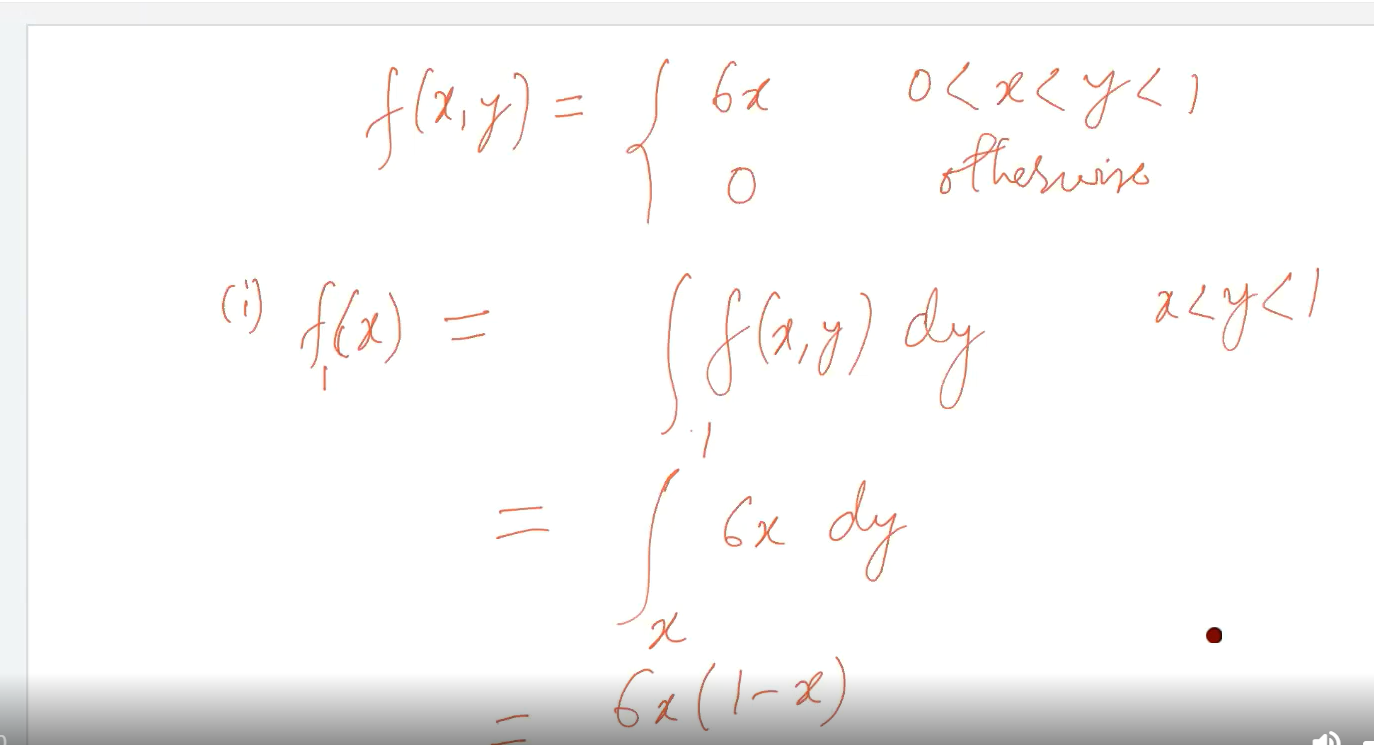 f(x,y) = { 6x 0 < x < y < 1
0 otherwise
(i) f₁(x) = ∫ f(x,y) dy x < y < 1
= ∫ₓ¹ 6x dy
= 6x(1-x)